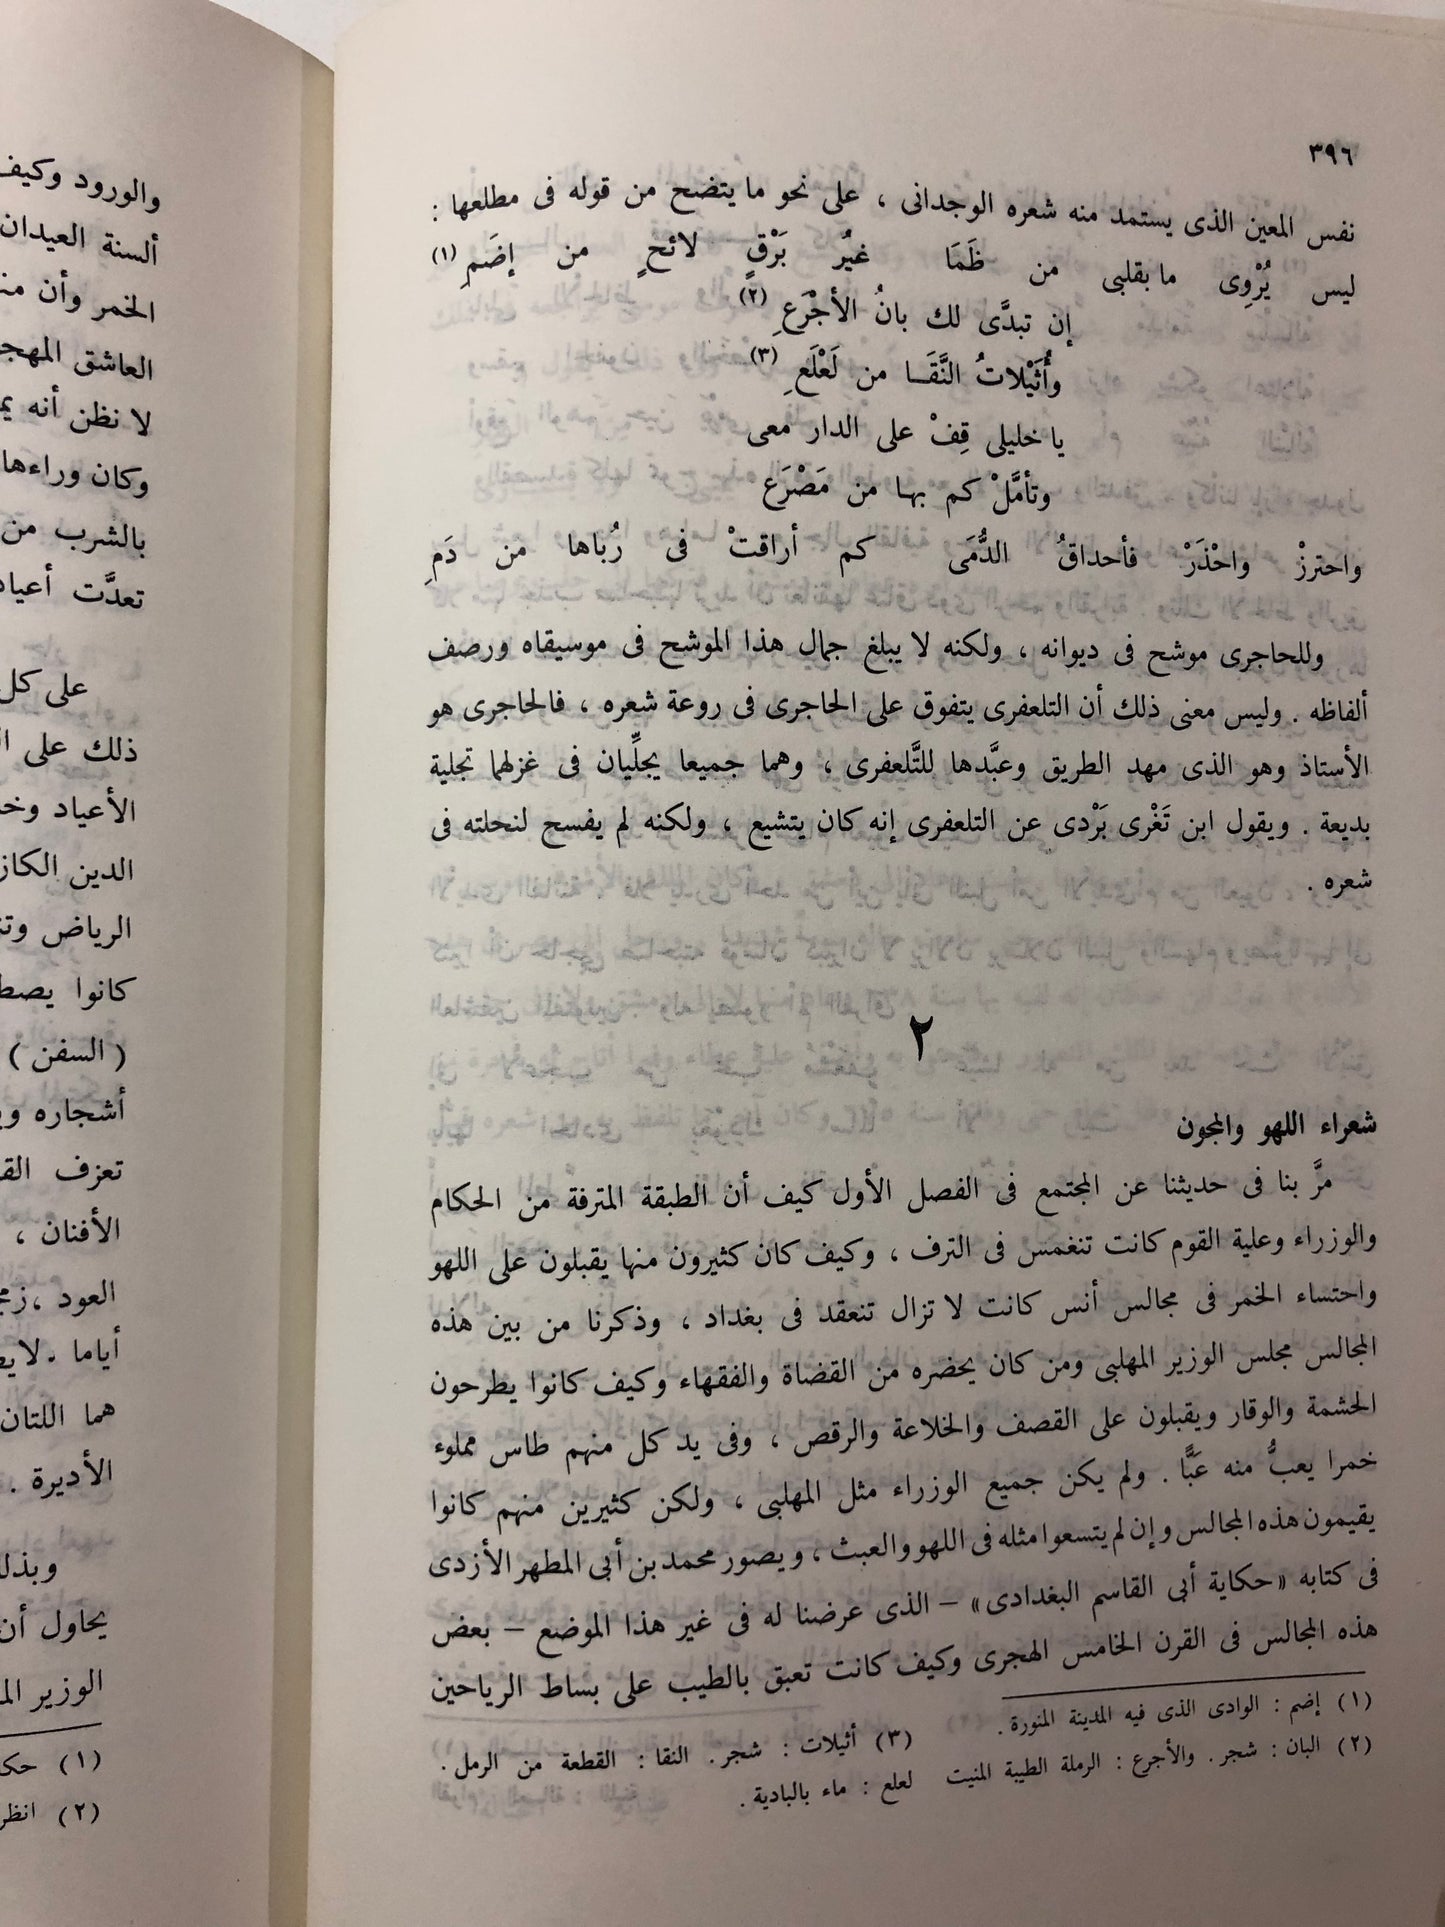 ٣٩٦
نفس المعين الذى يستمد منه شعره الوجدانى ، على نحو ما يتضح من قوله فى مطلعها :
ليس يُرْوِى ما بقلبى من ظَمَا غيُر بَرْقٍ لائحٍ من إضَمِ (١)
إن تبدَّى لك بانُ الأجْرَعِ (٢)
وأُثَيْلاتُ النَّقَا من لَعْلَعِ (٣)
يا خليلى قِفْ على الدار معى
وتأمَّلْ كم بها من مَصْرَعِ
واحترزْ واحْذَرْ فأحداقُ الدُّمَى كم أراقتْ فى رُباها من دَمِ
وللحاجرى موشح فى ديوانه ، ولكنه لا يبلغ جمال هذا الموشح فى موسيقاه ورصف
ألفاظه . وليس معنى ذلك أن التلعفرى يتفوق على الحاجرى فى روعة شعره ، فالحاجرى هو
الأستاذ وهو الذى مهد الطريق وعبَّدها للتَّلعفرى ، وهما جميعا يجلِّيان فى غزلهما تجلية
بديعة . ويقول ابن تَغْرى بَرْدى عن التلعفرى إنه كان يتشيع ، ولكنه لم يفسح لنحلته فى
شعره .
٢
شعراء اللهو والمجون
مرَّ بنا فى حديثنا عن المجتمع فى الفصل الأول كيف أن الطبقة المترفة من الحكام
والوزراء وعلية القوم كانت تنغمس فى الترف ، وكيف كان كثيرون منها يقبلون على اللهو
واحتساء الخمر فى مجالس أنس كانت لا تزال تنعقد فى بغداد ، وذكرنا من بين هذه
المجالس مجلس الوزير المهلبى ومن كان يحضره من القضاة والفقهاء وكيف كانوا يطرحون
الحشمة والوقار ويقبلون على القصف والخلاعة والرقص ، وفى يد كل منهم طاس مملوء
خمرا يعبُّ منه عَبًّا . ولم يكن جميع الوزراء مثل المهلبى ، ولكن كثيرين منهم كانوا
يقيمون هذه المجالس وإن لم يتسعوا مثله فى اللهو والعبث ، ويصور محمد بن أبى المطهر الأزدى
فى كتابه « حكاية أبى القاسم البغدادى » – الذى عرضنا له فى غير هذا الموضع – بعض
هذه المجالس فى القرن الخامس الهجرى وكيف كانت تعبق بالطيب على بساط الرياحين
(١) إضم : الوادى الذى فيه المدينة المنورة .
(٢) البان : شجر . والأجرع : الرملة الطيبة المنبت
(٣) أثيلات : شجر . النقا : القطعة من الرمل .
لعلع : ماء بالبادية .
والورود وكيف
ألسنة العيدان
الخمر وأن
العاشق المهجـ
لا نظن أنه
وكان وراءها
بالشرب من
تعدَّت أعياد
على كل
ذلك على
الأعياد
الدين الكاز
الرياض
كانوا
( السفن )
أشجاره
تعزف
الأفنان ،
العود ،
أياما .
هما اللتان
الأديرة .
وبذلك
يحاول أن
الوزير
(١)
(٢) انظر